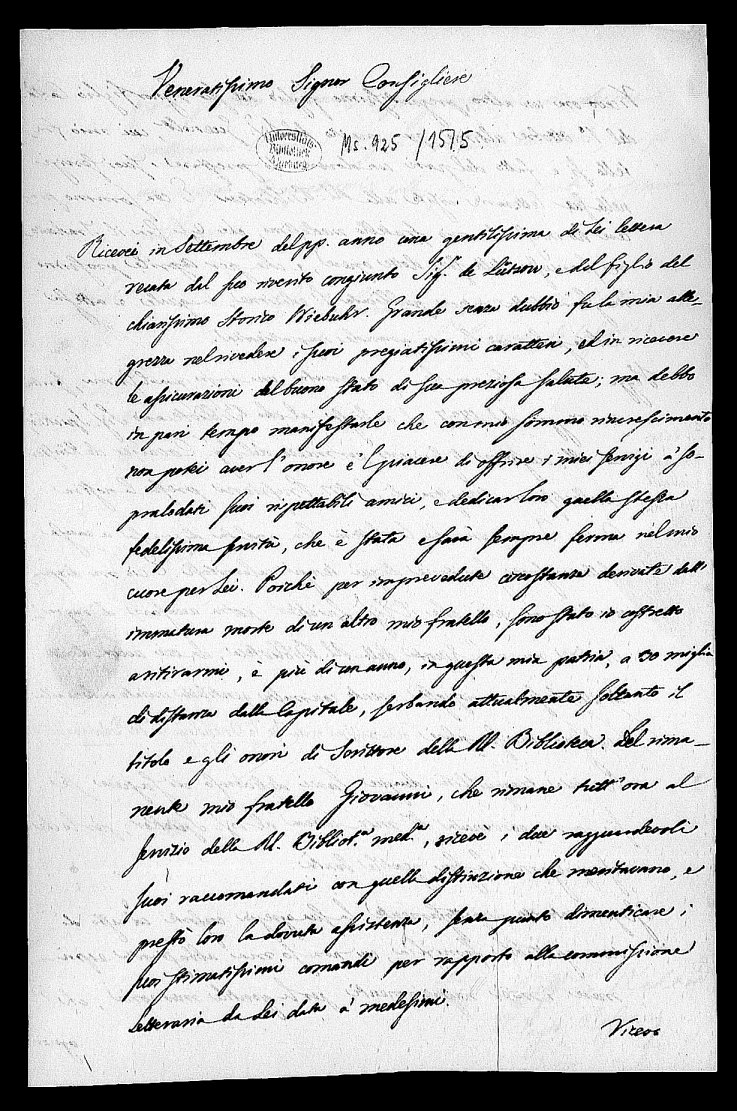 Veneratissimo Signor Consigliere
Universitäts
Bibliothek
Ms. 925 / 1515
Ricevei in Settembre del pp. anno una gentilissima di Lei lettera
recata dal suo riverito congiunto Sigr. de Lützow, e del figlio del
chiarissimo Storico Niebuhr. Grande senza dubbio fu la mia alle-
grezza nel rivedere i suoi pregiatissimi caratteri, ed in ricevere
le assicurazioni del buono stato di sua preziosa salute; ma debbo
in pari tempo manifestarle che con mio sommo rincrescimento
non potei aver l'onore e 'l piacere di offrire i miei servigi à so-
pralodati suoi rispettabili amici, e dedicar loro quella stessa
fedelissima servitù, che è stata e sarà sempre ferma nel mio
cuore per Lei. Poichè per imprevedute circostanze derivate dall'
immatura morte di un altro mio fratello, sono stato io costretto
a ritirarmi, è più di un anno, in questa mia patria, a 30 miglia
di distanza dalla Capitale, serbando attualmente soltanto il
titolo e gli onori di Scrittore della Rl. Biblioteca. Del rima-
nente mio fratello Giovanni, che rimane tutt'ora al
servizio della Rl. Bibliot.a med.a, riceve i due ragguardevoli
suoi raccomandati con quella distinzione che meritavano, e
prestò loro la dovuta assistenza, senza punto dimenticare i
suoi stimatissimi comandi per rapporto alla commissione
letteraria da Lei data à medesimi